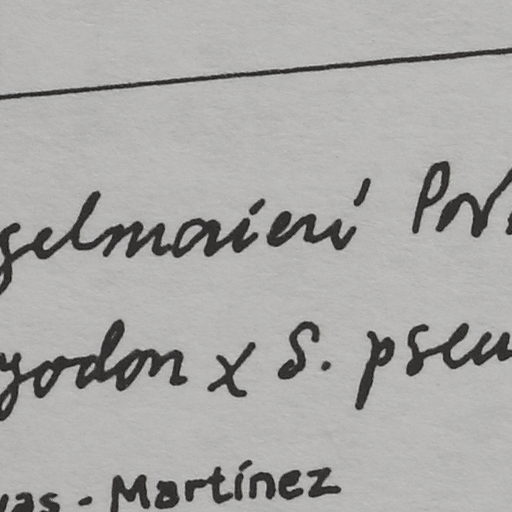 gelmaieri Por
yodon x S. pseu
vas - Martínez